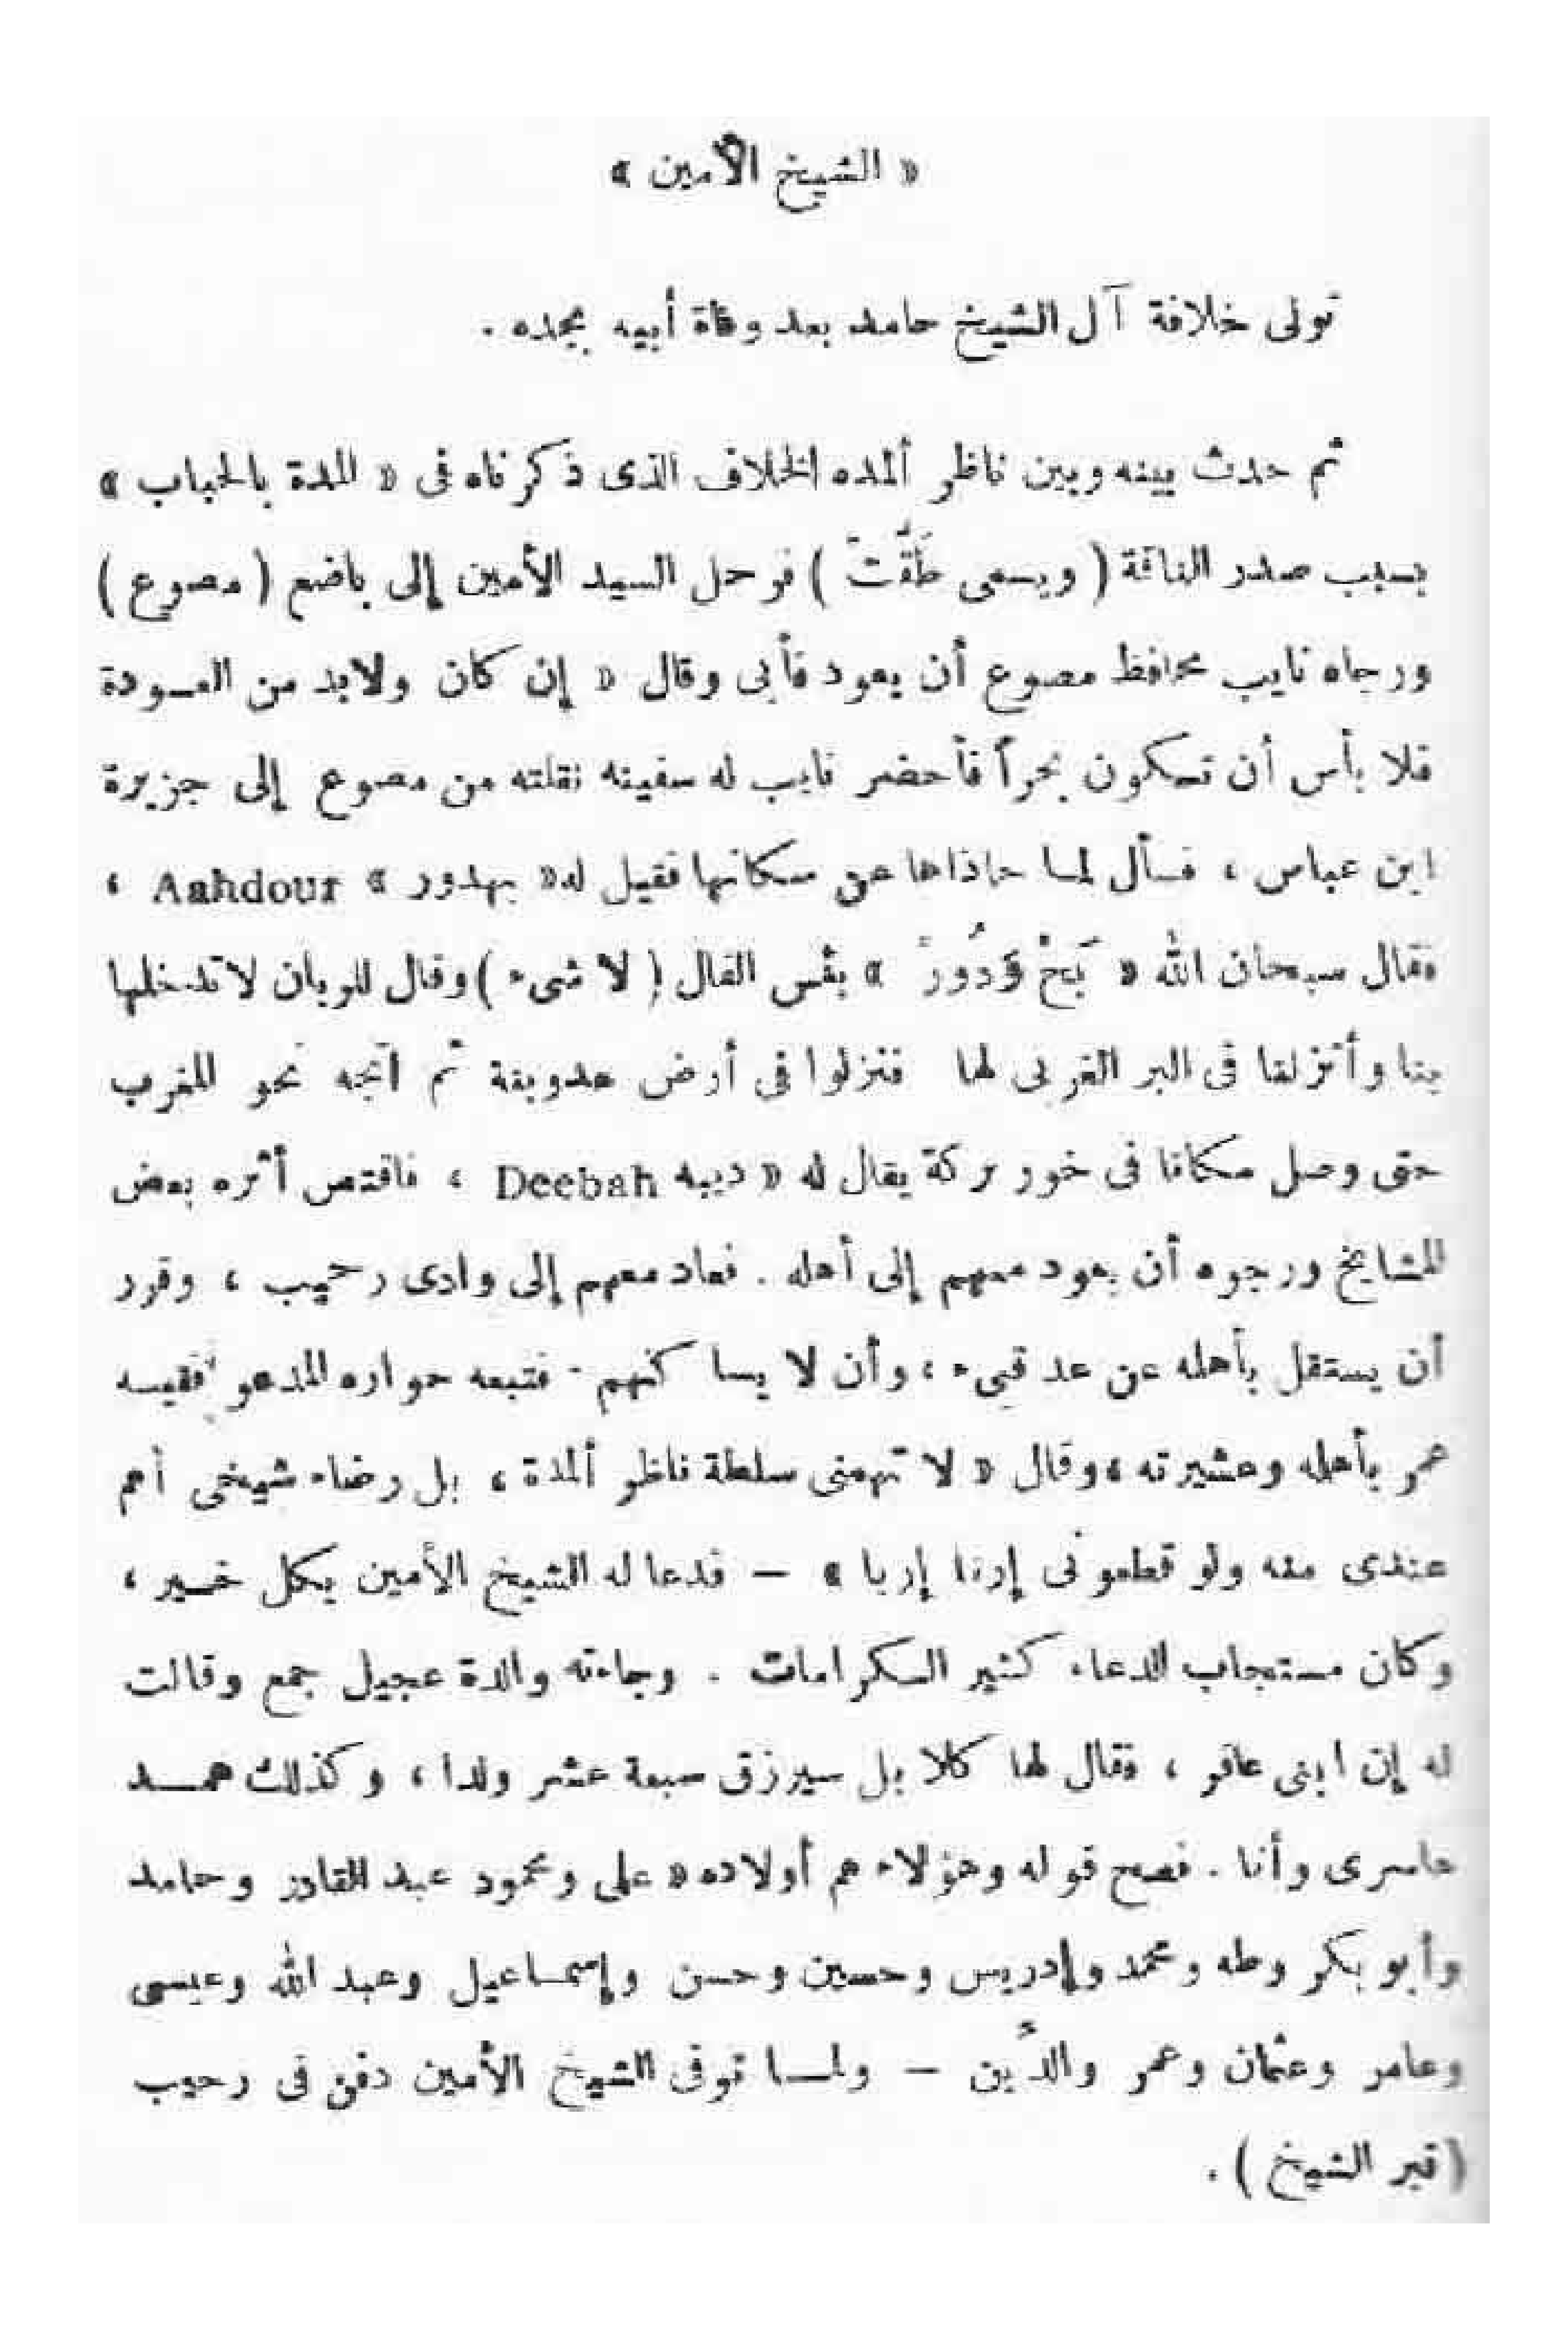 « الشيخ الأمين »
تولى خلافة آل الشيخ حامد بعد وفاة أبيه بمجده .
ثم حدث بينه وبين ناظر ألمده الخلاف الذى ذكرناه فى « المدة بالحباب »
بسبب صدر الناقة ( ويسمى طَقَّتَ ) فرحل السيد الأمين إلى باضع ( مصوع )
ورجاه نايب محافظ مصوع أن يعود فأبى وقال « إن كان ولابد من العودة
فلا بأس أن تكون بحراً فأحضر نايب له سفينه نقلته من مصوع إلى جزيرة
ابن عباس ، فسأل لما حاذاها عن سكانها فقيل له « بهدور » Aahdour ،
فقال سبحان الله « بَحْ وَدُورْ » بئس الفال ( لا شىء ) وقال للربان لا تدخلها
بنا وأنزلنا فى البر الغربى لها فنزلوا فى أرض عدوبنة ثم اتجه نحو المغرب
حتى وصل مكانا فى خور بركة يقال له « ديبه Deebah ، فاقتص أثره بعض
المشايخ ورجوه أن يعود معهم إلى أهله . فعاد معهم إلى وادى رحيب ، وقرر
أن يستقل بأهله عن عد قبىء ، وأن لا يساكنهم - فتبعه حواره المدعو فقيسه
عمر بأهله وعشيرته ، وقال « لا تهمنى سلطة ناظر ألمدة ، بل رضاء شيخى أهم
عندى منه ولو قطعونى إربا إربا » — فدعا له الشيخ الأمين بكل خير ،
وكان مستجاب الدعاء كثير الكرامات . وجاءته والدة عجيل جمع وقالت
له إن ابنى عاقر ، فقال لها كلا بل سيرزق سبعة عشر ولدا ، وكذلك حمد
حاسرى وأنا . فصح قوله وهؤلاء هم أولاده « على ومحمود عبد القادر وحامد
وأبو بكر وطه ومحمد وإدريس وحسين وحسن وإسماعيل وعبد الله وعيسى
وعامر وعثمان وعمر والدَّين — ولما توفى الشيخ الأمين دفن فى رحيب
( قبر الشيخ ) .